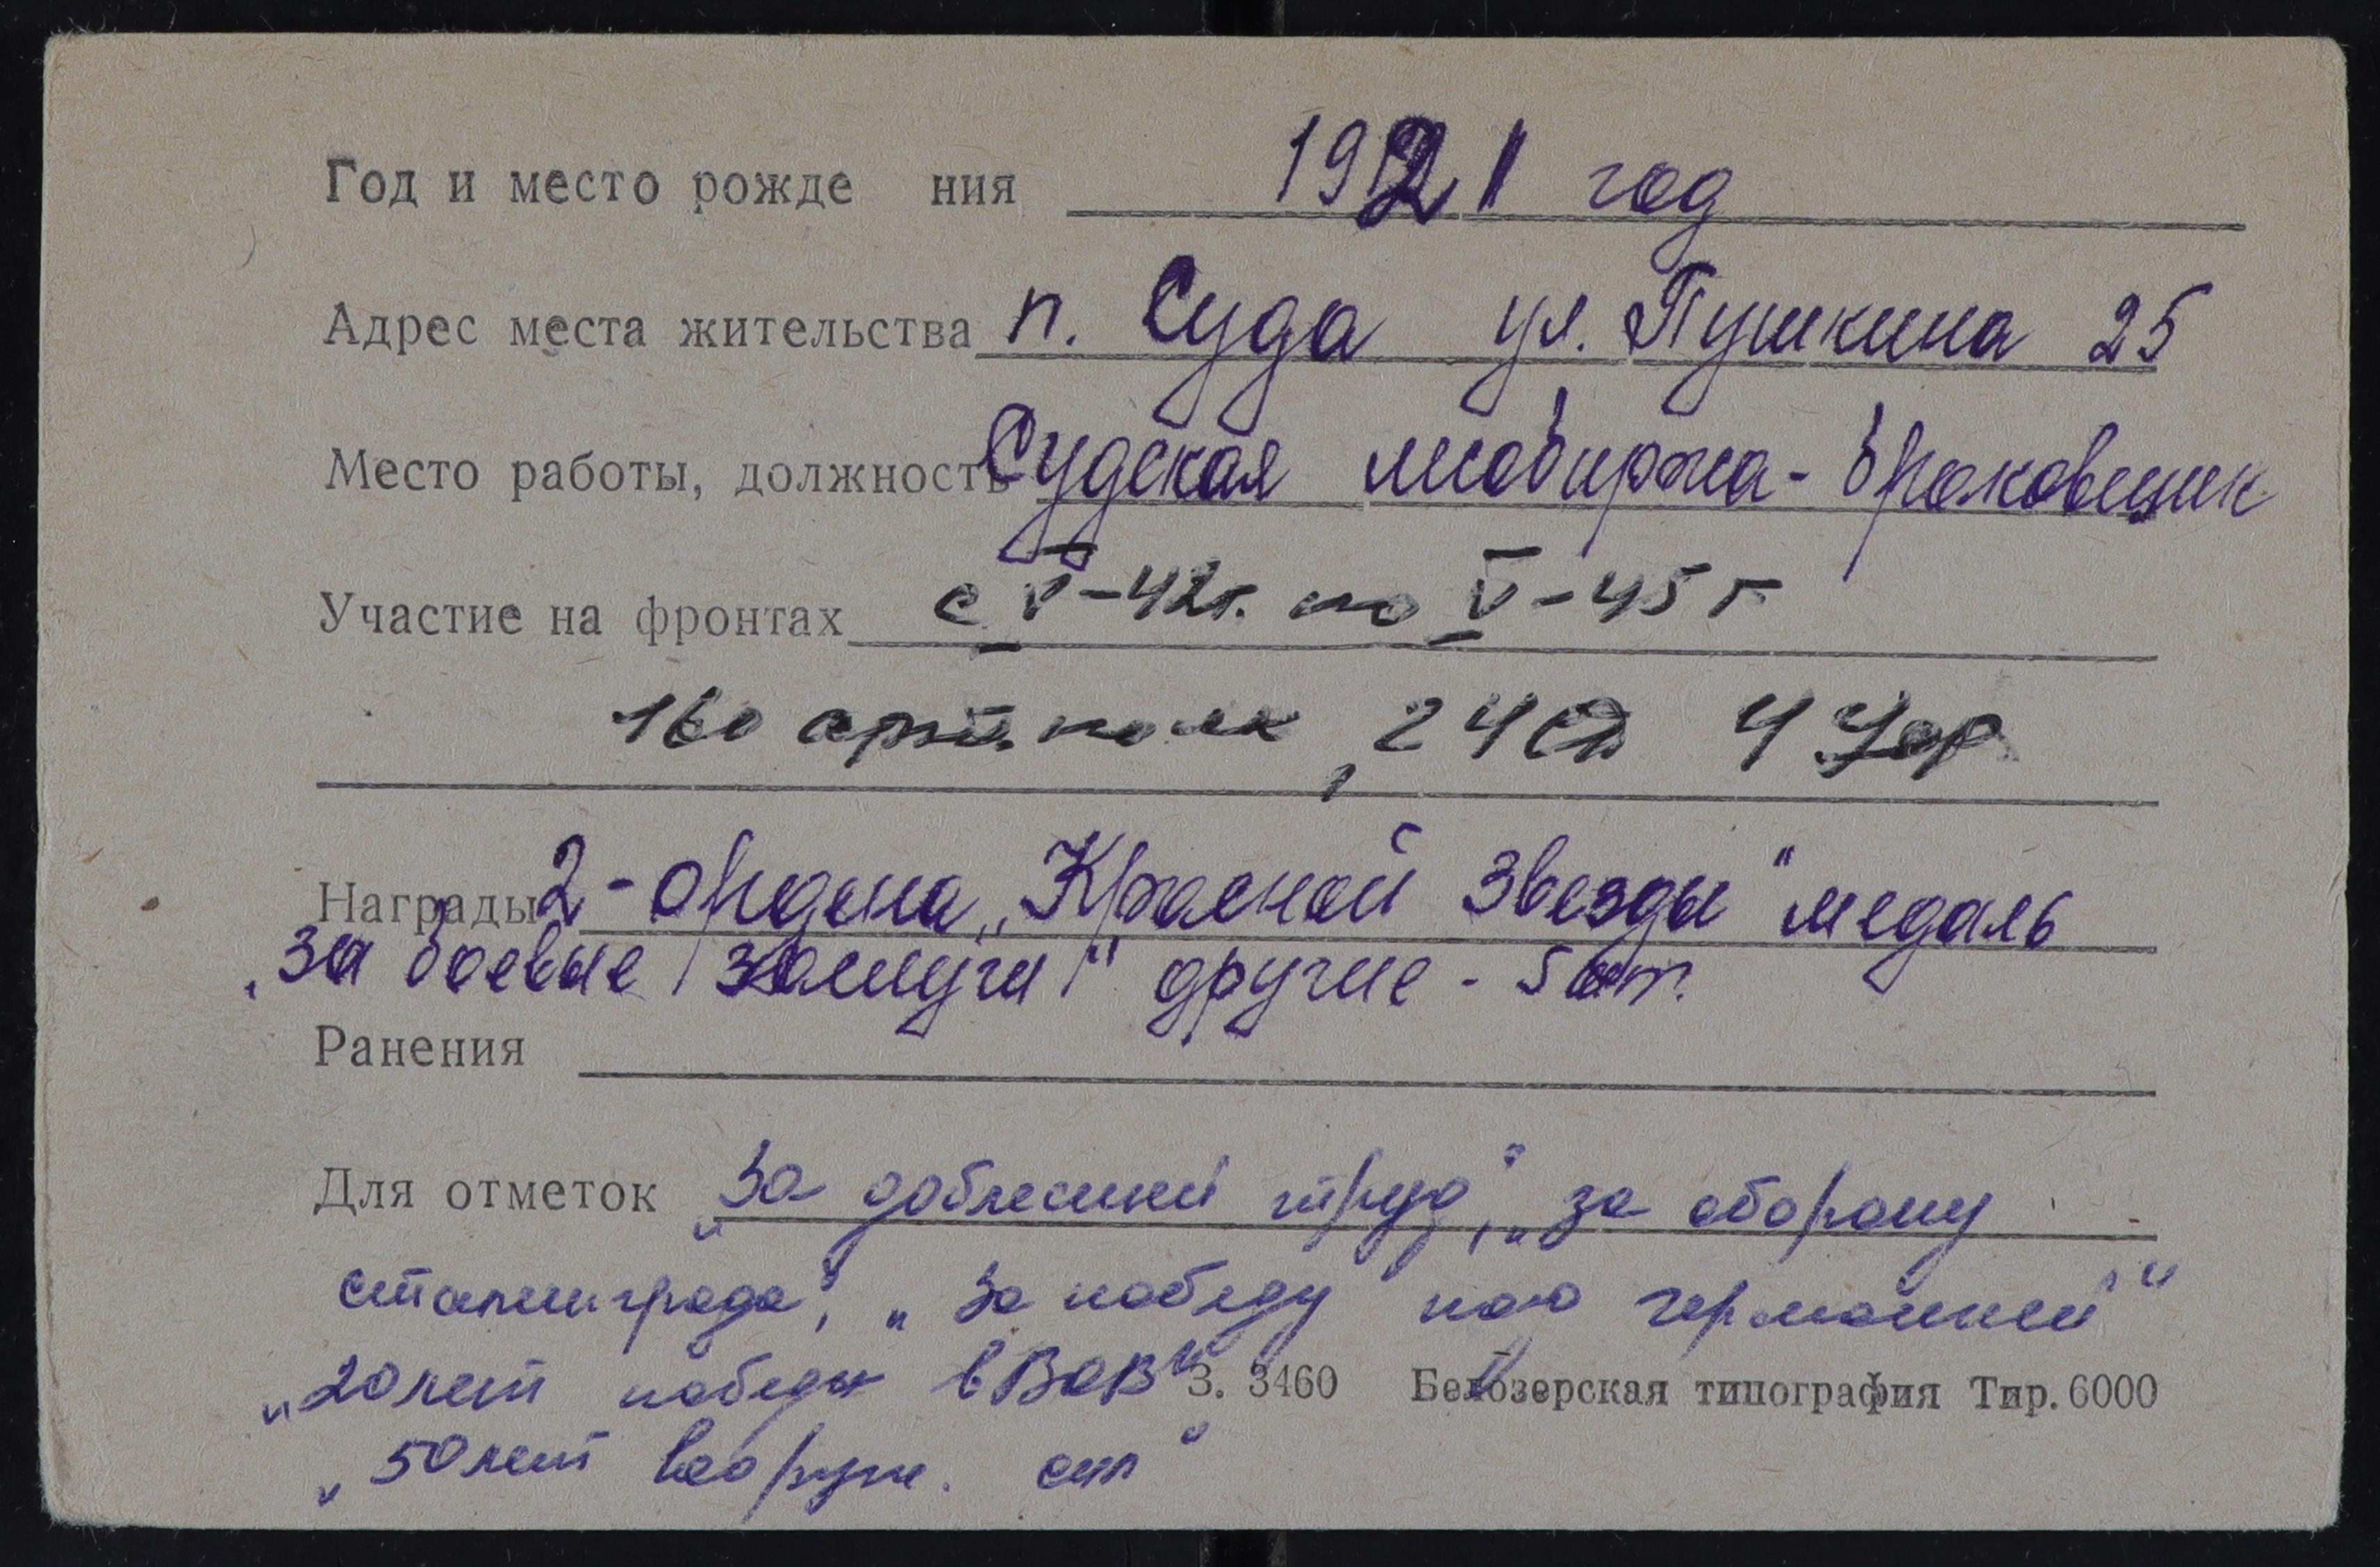 Год и место рожде ния 1921 год
Адрес места жительства п. Суда ул. Пушкина 25
Место работы, должность Судская лесобиржа - браковщик
Участие на фронтах с V-42г. по V-45 г
160 арт. полк, 24 СД 4 Укр
Награды 2 - ордена „Красной Звезды" медаль
„За боевые заслуги" другие - 5 шт.
Ранения
Для отметок „За доблесный труд", „за оборону
сталинграда", „За победу над германией"
„20 лет победы в ВОВ" З. 3460 Белозерская типография Тир. 6000
„50 лет вооруж. сил"